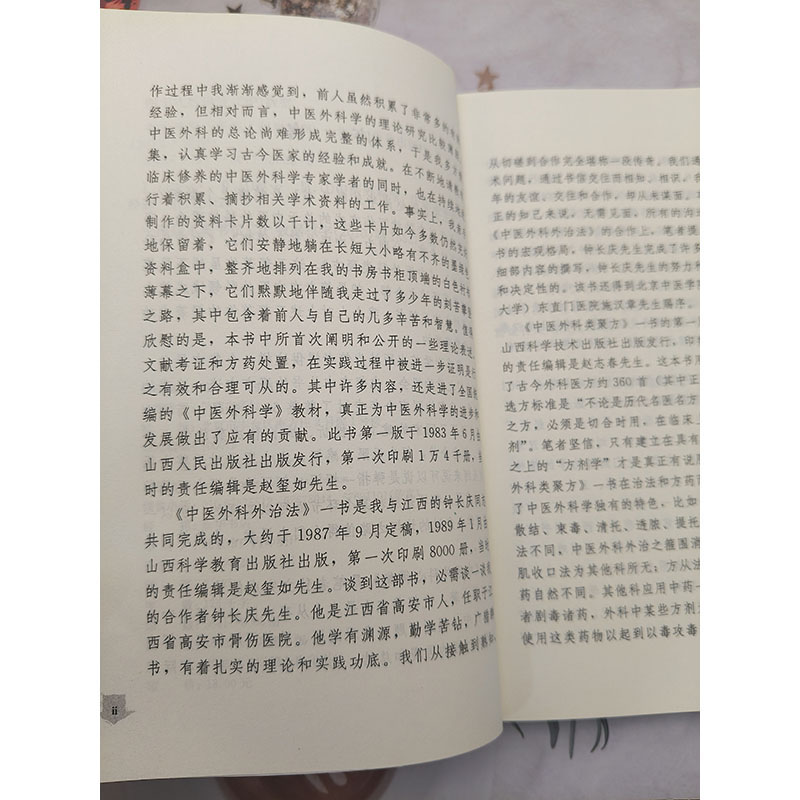 作过程中我渐渐感觉到，前人虽然积累了非常多的
经验，但相对而言，中医外科学的理论研究比较薄
中医外科的总论尚难形成完整的体系，于是我多方
集，认真学习古今医家的经验和成就。在不断地请教
临床修养的中医外科学专家学者的同时，也在持续地
行着积累、摘抄相关学术资料的工作。事实上，我
制作的资料卡片数以千计，这些卡片如今多数仍然
地保留着，它们安静地躺在长短大小略有不齐的墨绿
资料盒中，整齐地排列在我的书房书柜顶端的白色
薄幕之下，它们默默地伴随我走过了多少年的刻苦攀
之路，其中包含着前人与自己的几多辛苦和智慧。值
欣慰的是，本书中所首次阐明和公开的一些理论表述、
文献考证和方药处置，在实践过程中被进一步证明是行
之有效和合理可从的。其中许多内容，还走进了全国
编的《中医外科学》教材，真正为中医外科学的进步和
发展做出了应有的贡献。此书第一版于 1983 年 6 月由
山西人民出版社出版发行，第一次印刷 1 万 4 千册，当
时的责任编辑是赵玺如先生。
《中医外科外治法》一书是我与江西的钟长庆同志
共同完成的，大约于 1987 年 9 月定稿，1989 年 1 月由
山西科学教育出版社出版，第一次印刷 8000 册，当时
的责任编辑是赵玺如先生。谈到这部书，必需谈一谈我
的合作者钟长庆先生。他是江西省高安市人，任职于江
西省高安市骨伤医院。他学有渊源，勤学苦钻，广猎群
书，有着扎实的理论和实践功底。我们从接触到熟知，
ii
从切磋到合作完全堪称一段传奇。我们通
术问题，通过书信交往而相知、相识。我
年的友谊、交往和合作，却从未谋面。
正的知己来说，无需见面，所有的沟
《中医外科外治法》的合作上，笔者提
书的宏观格局，钟长庆先生完成了许
细部内容的撰写，钟长庆先生的努力和
和决定性的。该书还得到北京中医学
大学）东直门医院施汉章先生赐序。
《中医外科类聚方》一书的第一
山西科学技术出版社出版发行，印
的责任编辑是赵志春先生。这本书
了古今外科医方约 360 首（其中正
选方标准是“不论是历代名医名方
之方，必须是切合时用，在临床
剂”。笔者坚信，只有建立在具有
之上的“方剂学”才是真正有说服
外科类聚方》一书在治法和方药
了中医外科学独有的特色，比如
散结、束毒、清托、透脓、提托
法不同，中医外科外治之箍围消
肌收口法为其他科所无；方从法
药自然不同，其他科应用中药一
者剧毒诸药，外科中某些方剂
使用这类药物以起到以毒攻毒